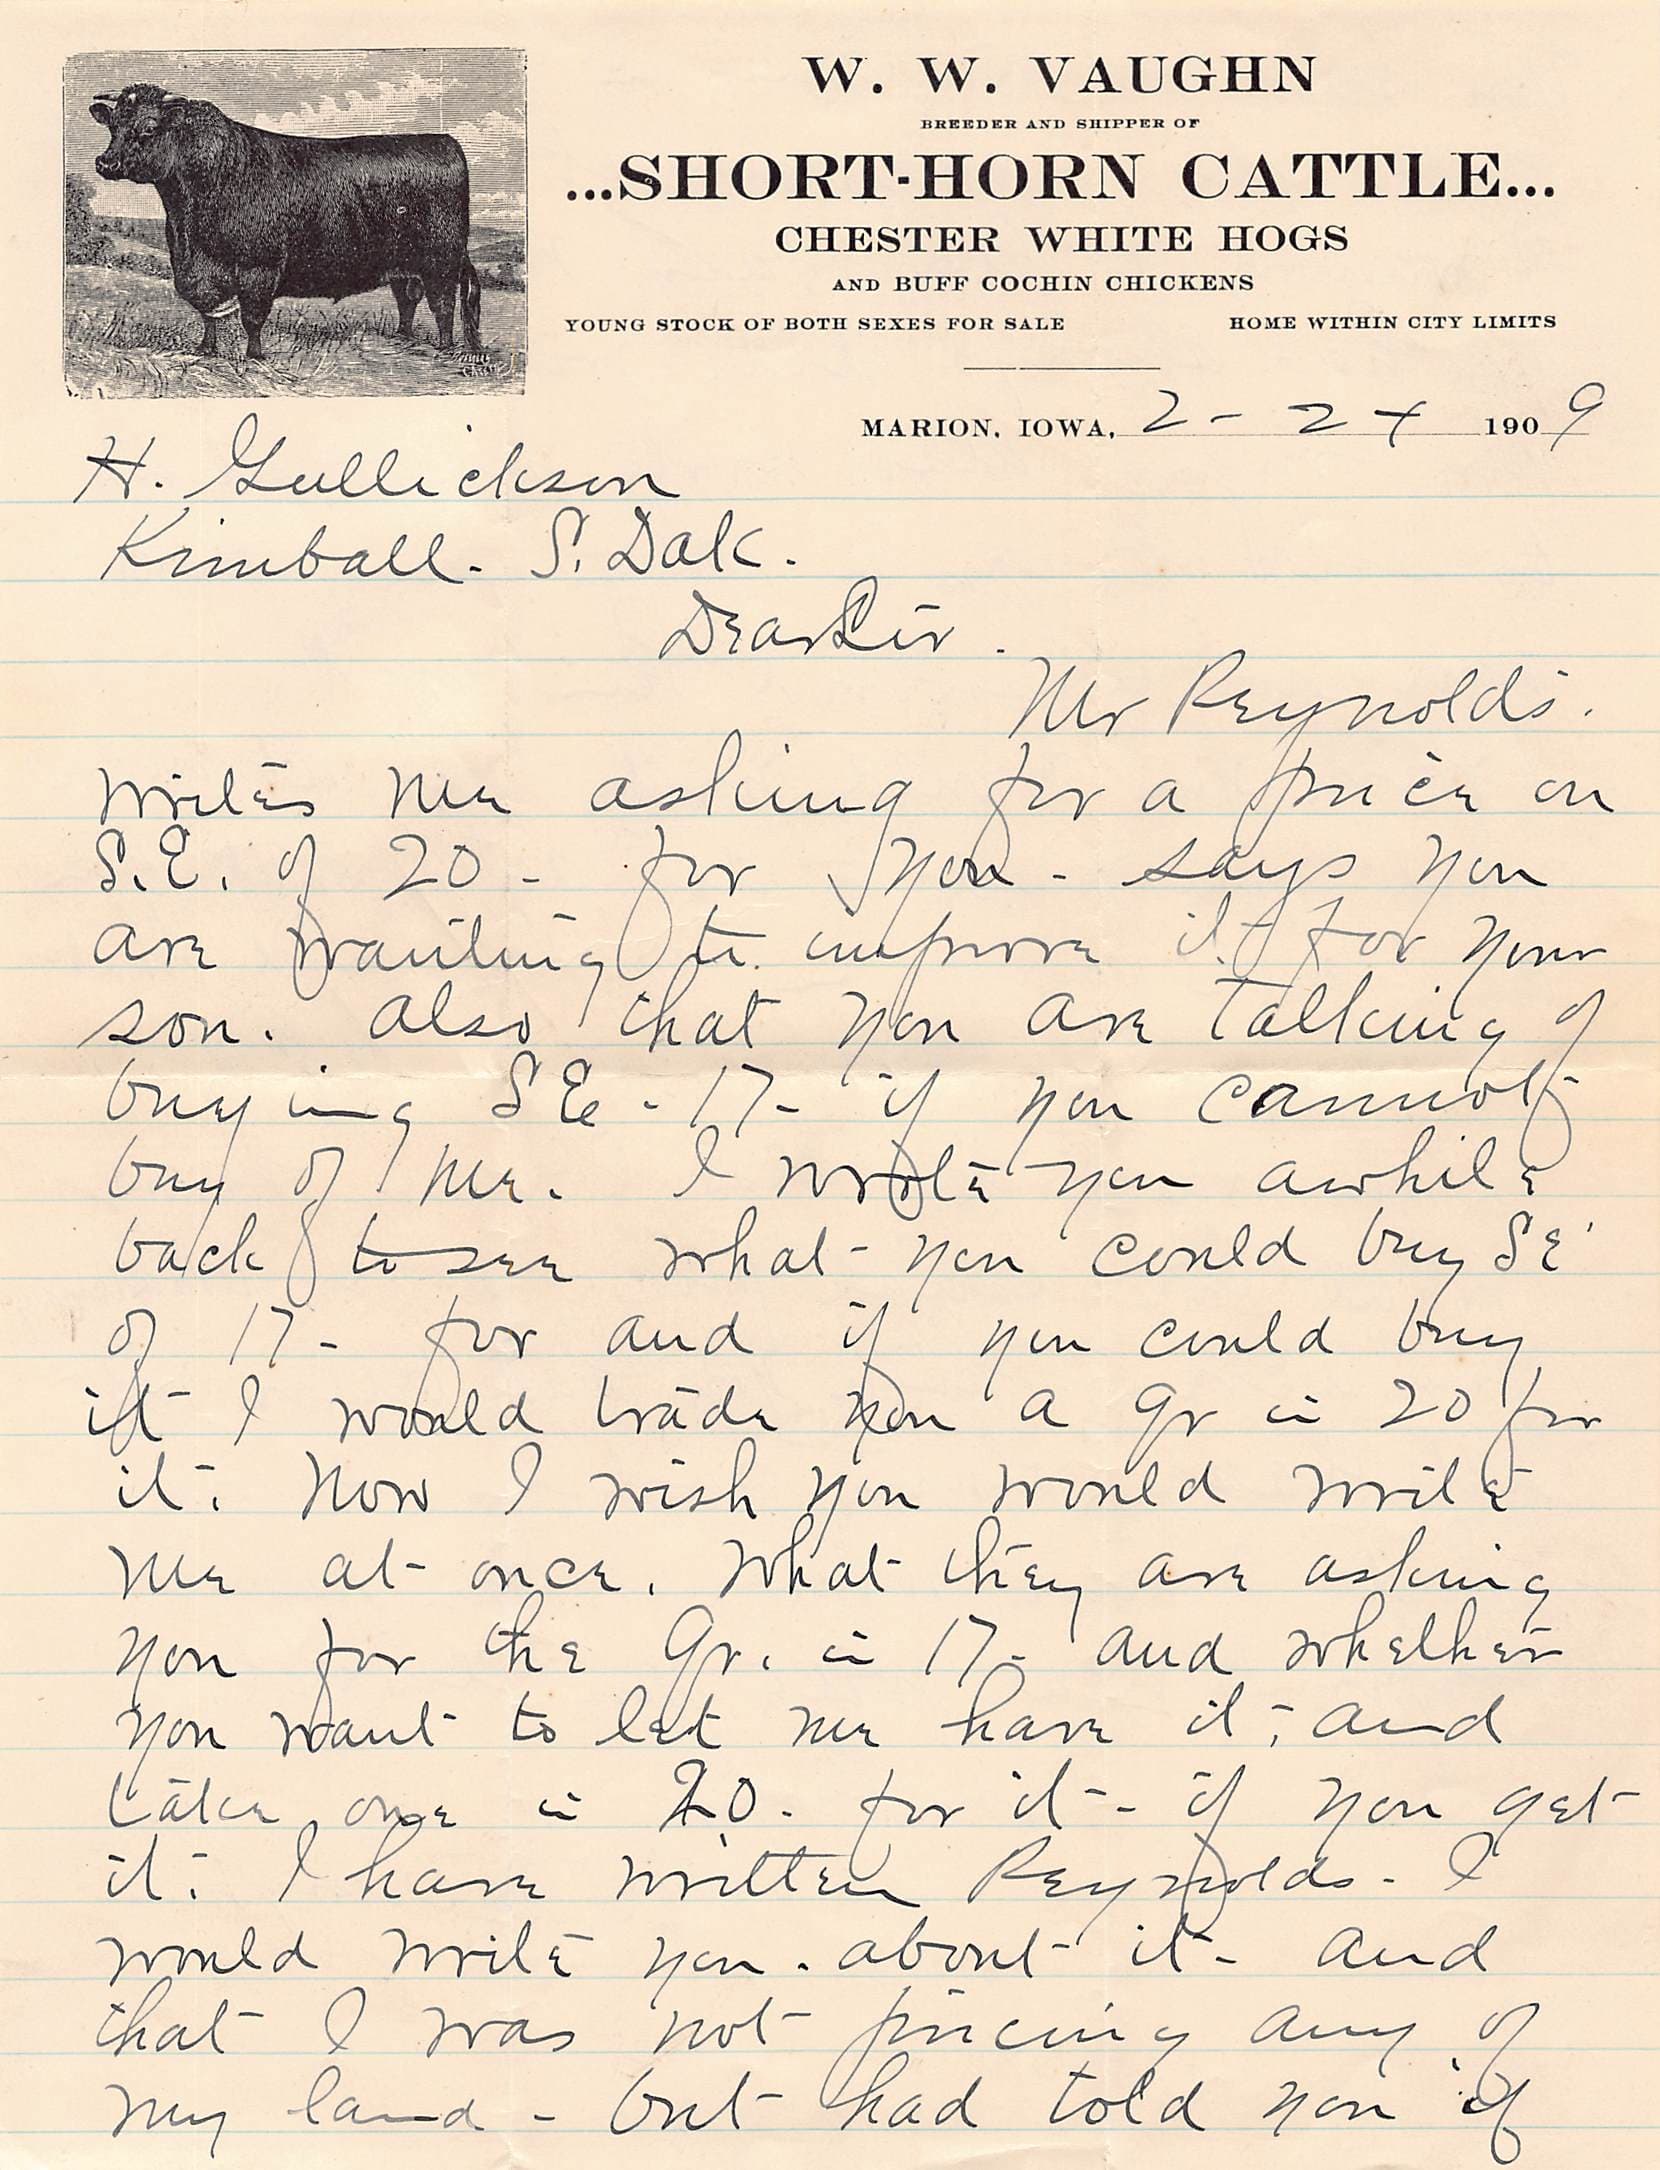 W. W. VAUGHN
BREEDER AND SHIPPER OF
...SHORT-HORN CATTLE...
CHESTER WHITE HOGS
AND BUFF COCHIN CHICKENS
YOUNG STOCK OF BOTH SEXES FOR SALE HOME WITHIN CITY LIMITS
MARION, IOWA, 2 - 24 1909
H. Gullickson
Kimball. S. Dak.
Dear Sir.
Mr Reynolds.
writes me asking for a price on
S.E. of 20 - for you - says you
are wanting to improve it for your
son. also that you are talking of
buying SE - 17 - if you cannot
buy of me. I wrote you awhile
back to see what you could buy SE
of 17 - for and if you could buy
it I would trade you a qr in 20 for
it. Now I wish you would write
me at once. What they are asking
you for the Qr. in 17 - and whether
you want to let me have it, and
take one in 20 - for it - if you get
it. I have written Reynolds - I
would write you. about it - and
that I was not pricing any of
my land - but had told you if